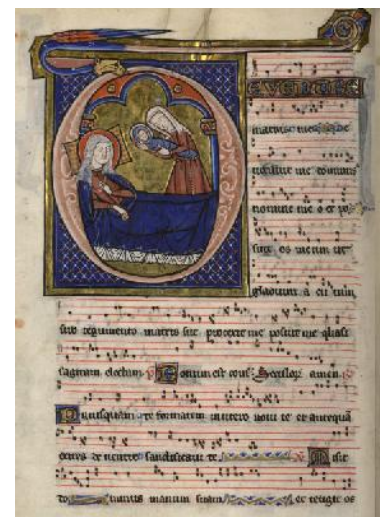 DEVENTRE
matris mee
vocavit me dominus
nomine meo et po
suit os meum ut
gladium acutum
sub tegumento manus sue protexit me posuit me quasi
sagittam electam Bonum est conf Seculor amen
Priusquam te formarem in utero novi te et antequa
exires de ventre sanctificavi te Misit
do minus manum suam et tetigit os